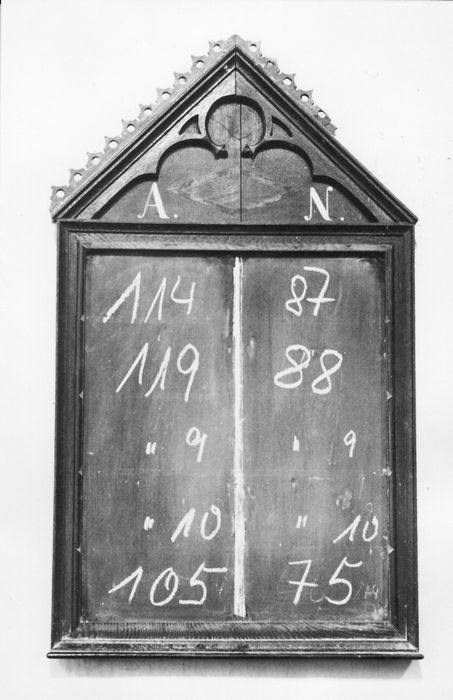 A. N.
114 87
119 88
" 9 " 9
" 10 " 10
105 75